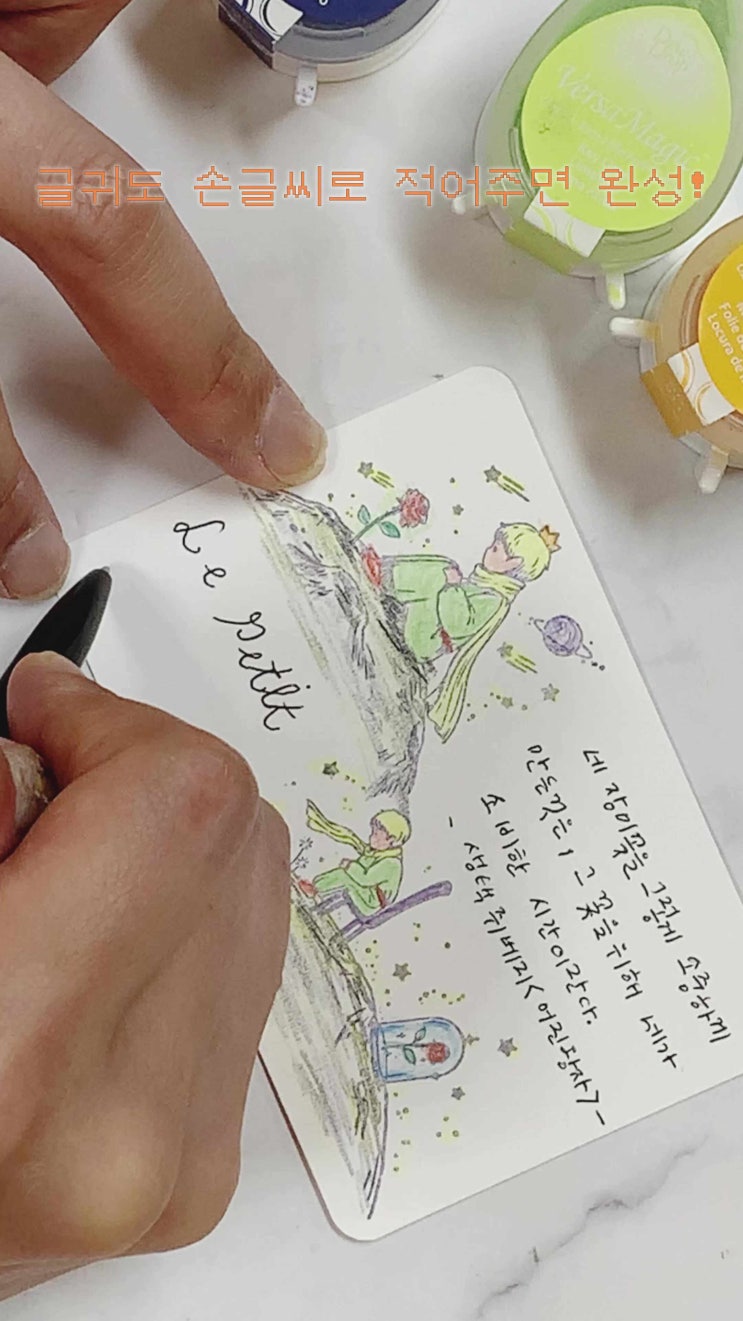 글귀도 손글씨로 적어주면 완성!
VersaMagic
Folie de
Locura de
Le Petit
네 장미꽃을 그렇게 소중하게
만든것은, 그 꽃을 위해 네가
소비한 시간이란다.
- 생텍쥐베리<어린왕자>-